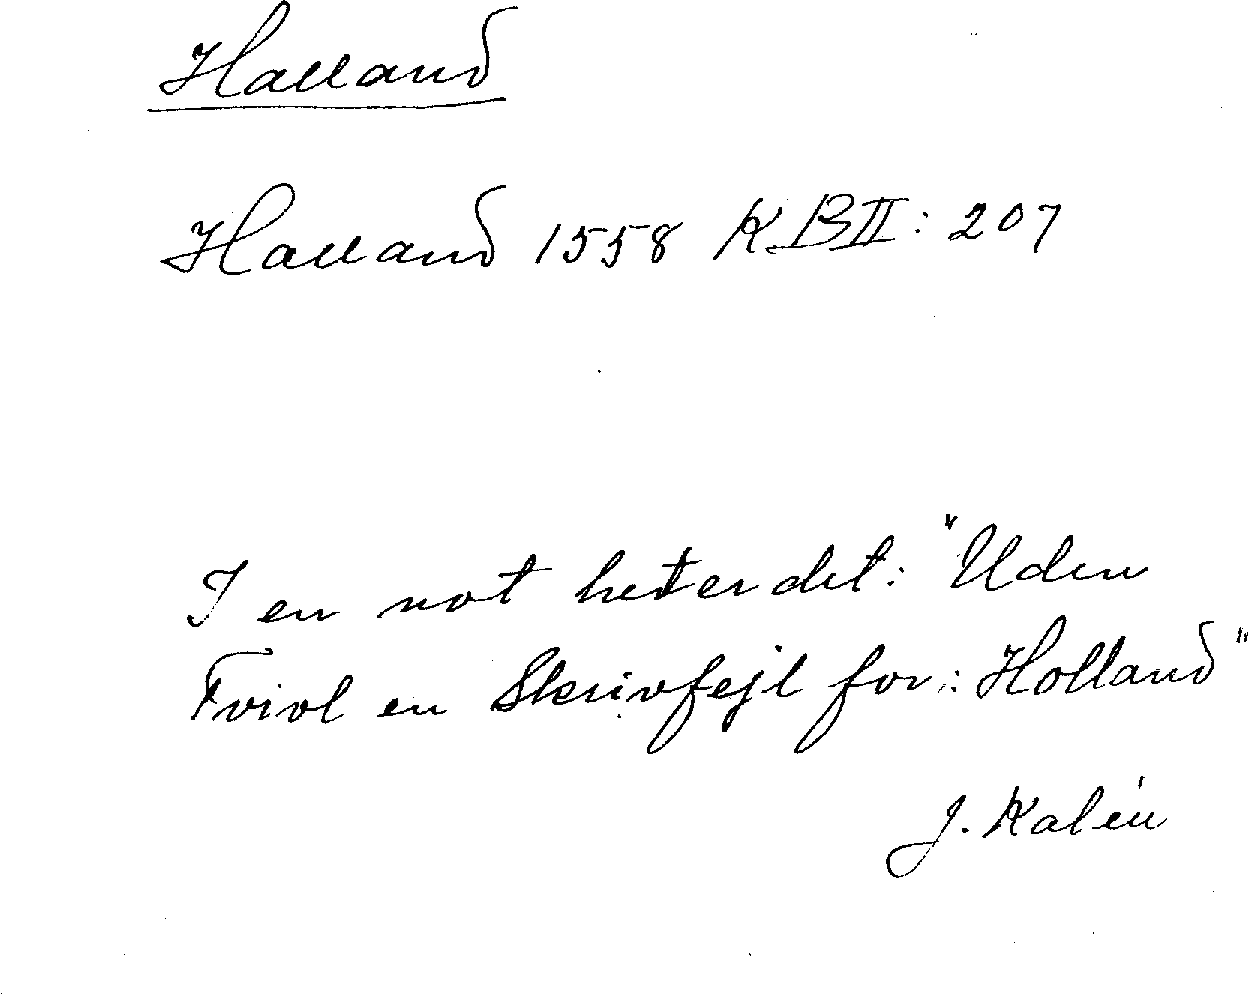 Halland
Halland 1558 KB II: 207
I en not heter det: "Uden
Tvivl en Skrivfejl for: Holland"
J. Kalén